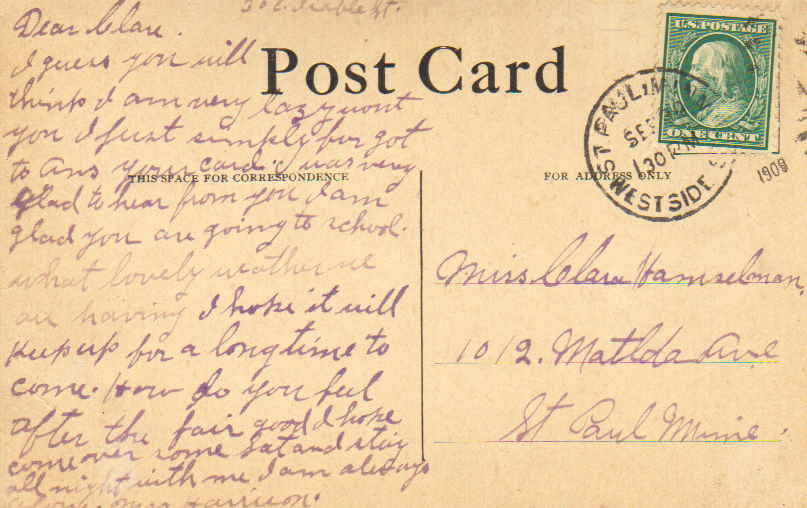 Dear Clare.
I guess you will
think I am very lazy wont
you I just simply forgot
to ans your card. I was very
glad to hear from you I am
glad you are going to school.
what lovely weather we
are having I hope it will
keep up for a long time to
come. How do you feel
after the fair good I hope
come over some Sat and stay
all night with me I am always
alone. Harrison.
Post Card
THIS SPACE FOR CORRESPONDENCE
FOR ADDRESS ONLY
U.S. POSTAGE
ONE CENT
ST PAUL, MINN
SEP
1 30 PM
1909
WEST SIDE
Miss Clara Hamselman,
1012. Matilda Ave
St Paul Minn.